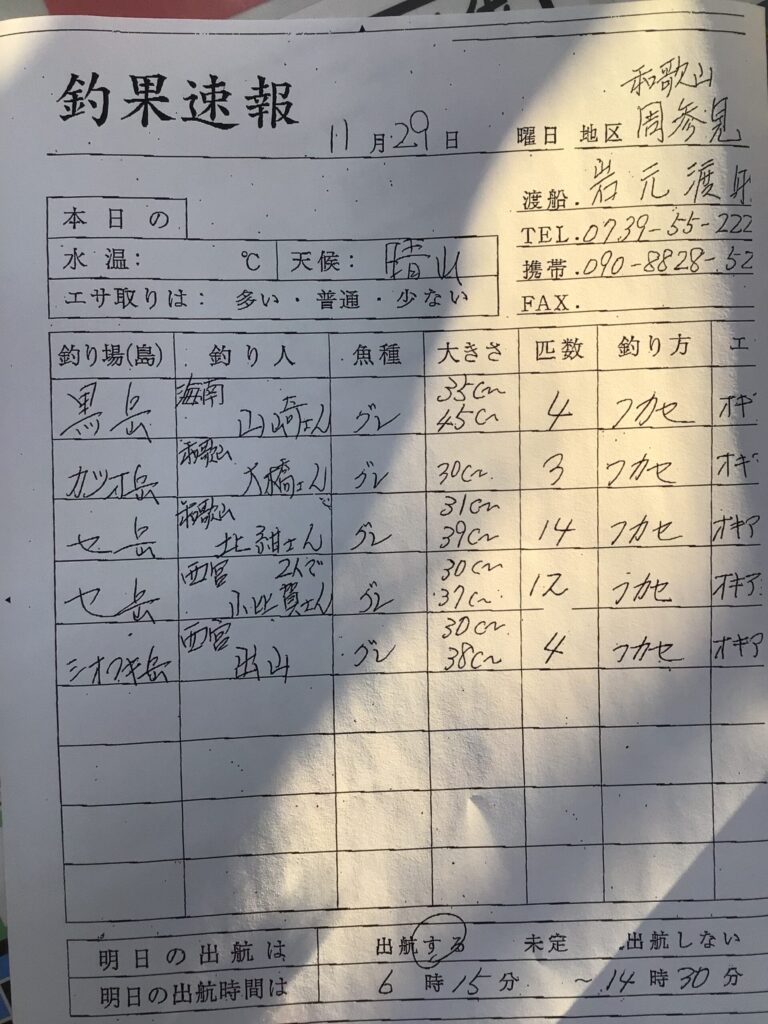 釣果速報
11月29日 曜日 地区 和歌山 周参見
渡船. 岩元渡
本日の
TEL. 0739-55-222
水温: ℃ 天候: 晴
携帯. 090-8828-52
エサ取りは: 多い・普通・少ない
FAX.
釣り場(島) 釣り人 魚種 大きさ 匹数 釣り方 エ
黒岳 海南 山崎さん グレ 35cm 45cm 4 フカセ オキ
カツオ岳 和歌山 大橋さん グレ 30cm 3 フカセ オキ
セ岳 和歌山 北 さん グレ 31cm 39cm 14 フカセ オキア
セ岳 西宮 2人で 小比賀さん グレ 30cm 37cm 12 フカセ オキア
シオフキ岳 西宮 出山 グレ 30cm 38cm 4 フカセ オキア
明日の出航は 出航する 未定 出航しない
明日の出航時間は 6時15分 ~14時30分